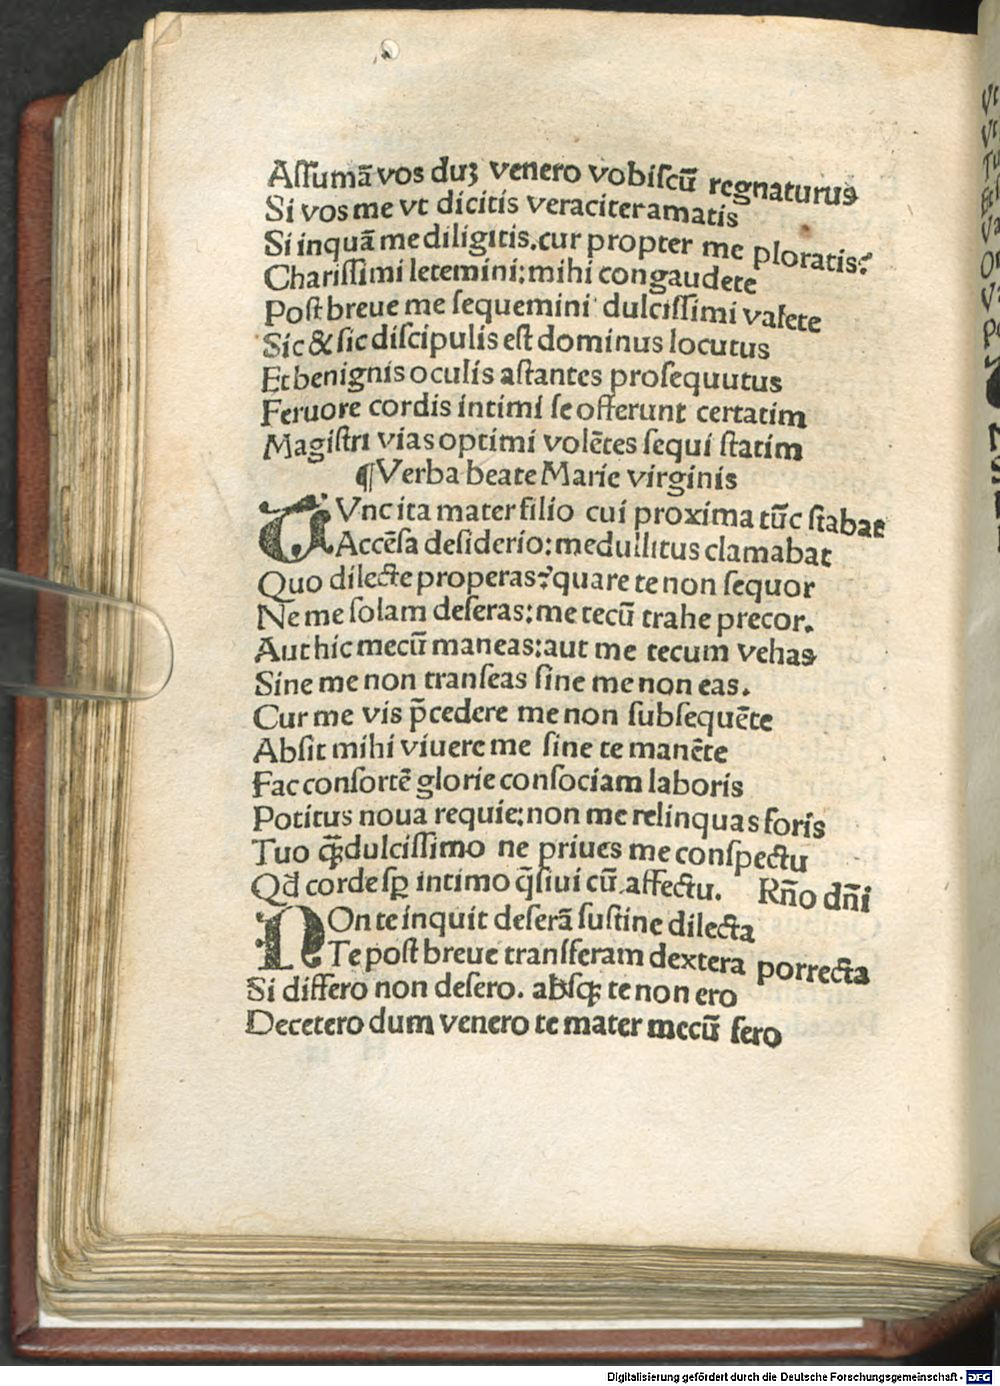 Aſſumā vos duꝫ venero vobiſcū regnaturus
Si vos me vt dicitis veraciter amatis
Si inquā me diligitis.cur propter me ploratis?
Chariſſimi letemini:mihi congaudete
Poſt breue me ſequemini dulciſſimi valete
Sic & ſic diſcipulis eſt dominus locutus
Et benignis oculis aſtantes proſequutus
Feruore cordis intimi ſe offerunt certatim
Magiſtri vias optimi volētes ſequi ſtatim
¶Verba beate Marie virginis
TVnc ita mater filio cui proxima tūc ſtabat
Accēſa deſiderio:medullitus clamabat
Quo dilecte properas?quare te non ſequor
Ne me ſolam deſeras:me tecū trahe precor.
Aut hic mecū maneas:aut me tecum vehas
Sine me non tranſeas ſine me non eas.
Cur me vis p̄cedere me non ſubſequēte
Abſit mihi viuere me ſine te manēte
Fac conſortē glorie conſociam laboris
Potitus noua requie:non me relinquas foris
Tuo q̄ꝫ dulciſſimo ne priues me conſpectu
Qd̄ corde ſꝑ intimo q̄ſiui cū affectu. Rn̄o dn̄i
NOn te inquit deſerā ſuſtine dilecta
Te poſt breue transferam dextera porrecta
Si differo non deſero. abſqꝫ te non ero
Decetero dum venero te mater mecū fero
Digitalisierung gefördert durch die Deutsche Forschungsgemeinschaft - DFG